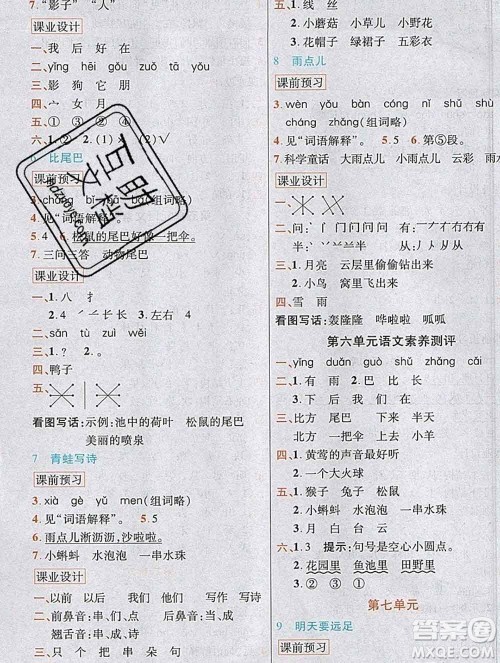 7. “影子” “人”
课业设计
一、我 后 好 在
二、yīng hēi gǒu zuǒ tā yǒu
三、影 狗 它 朋
四、亠 女 月
五、① ③ ② ④
六、
6 比尾巴
课前预习
4. 见“词语解释”。
5. 4 6. 松鼠的尾巴好像一把伞。
7. 三问三答 动物尾巴
课业设计
一、1. 八 扌
二、sǎn tù zuì biǎn wěi
三、
四、鸭子
五、
看图写话：示例：池中的荷叶 松鼠的尾巴
美丽的喷泉
7 青蛙写诗
课前预习
3. xià gè yǔ men(组词略)
4. 见“词语解释”。 5. 5
6. 雨点儿淅沥沥，沙啦啦。
7. 小蝌蚪 水泡泡 一串水珠
课业设计
一、以前 以后 我们 他们 写作 写诗
二、前鼻音：们、点 后鼻音：当、成
翘舌音：成、诗
三、只 个 把 串 朵 句
五、1. 线 丝
2. 小蘑菇 小草儿 小野花
3. 花帽子 绿裙子 五彩衣
8 雨点儿
课前预习
3. wèn yǒu bàn cóng nǐ shǔ shù
cháng zhǎng(组词略)
4. 见“词语解释”。 5. 3 6. 第⑤段。
7. 科学童话 大雨点儿 小雨点儿 云彩
课业设计
一、
三、1. 月亮 云层里偷偷钻出来
2. 小鸟 窝里飞出来
四、雪 雨
看图写话：轰隆隆 哗啦啦 呱呱
第六单元语文素养测评
一、yīng duǎn guò sǎn wèn zhǎng
二、1. 比 方 半 巴
2. 下 后 我们 在
三、1. 一把伞 一串水珠
2. 半个 你们 从前
四、1. 黄莺的声音最好听
2. 一个大火球
五、1. 猴子 兔子 松鼠
2. 鱼 水泡泡
3. 月 白 田 云
六、1. 3 提示：句号是空心小圆点。
2. 花园里 鱼池里 田野里
3. ② ① ③
第七单元
9 明天要远足
课前预习
互助文档
hdzuoye.com
答案圈
MXQE.COM